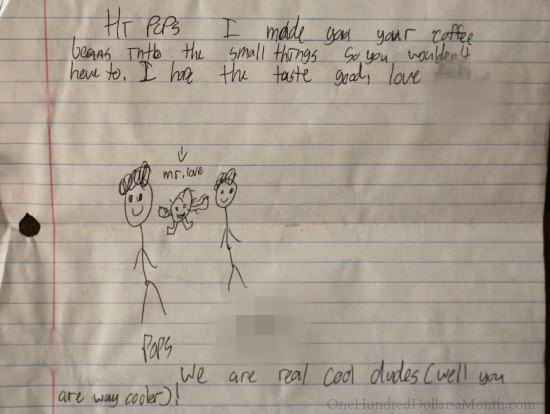 HI POPS I made you your coffee
beans into the small things so you wouldn't
have to. I hope the taste good, love
mr. love
POPS
We are real cool dudes (well you
are way cooler)!
OneHundredDollarsaMonth.com